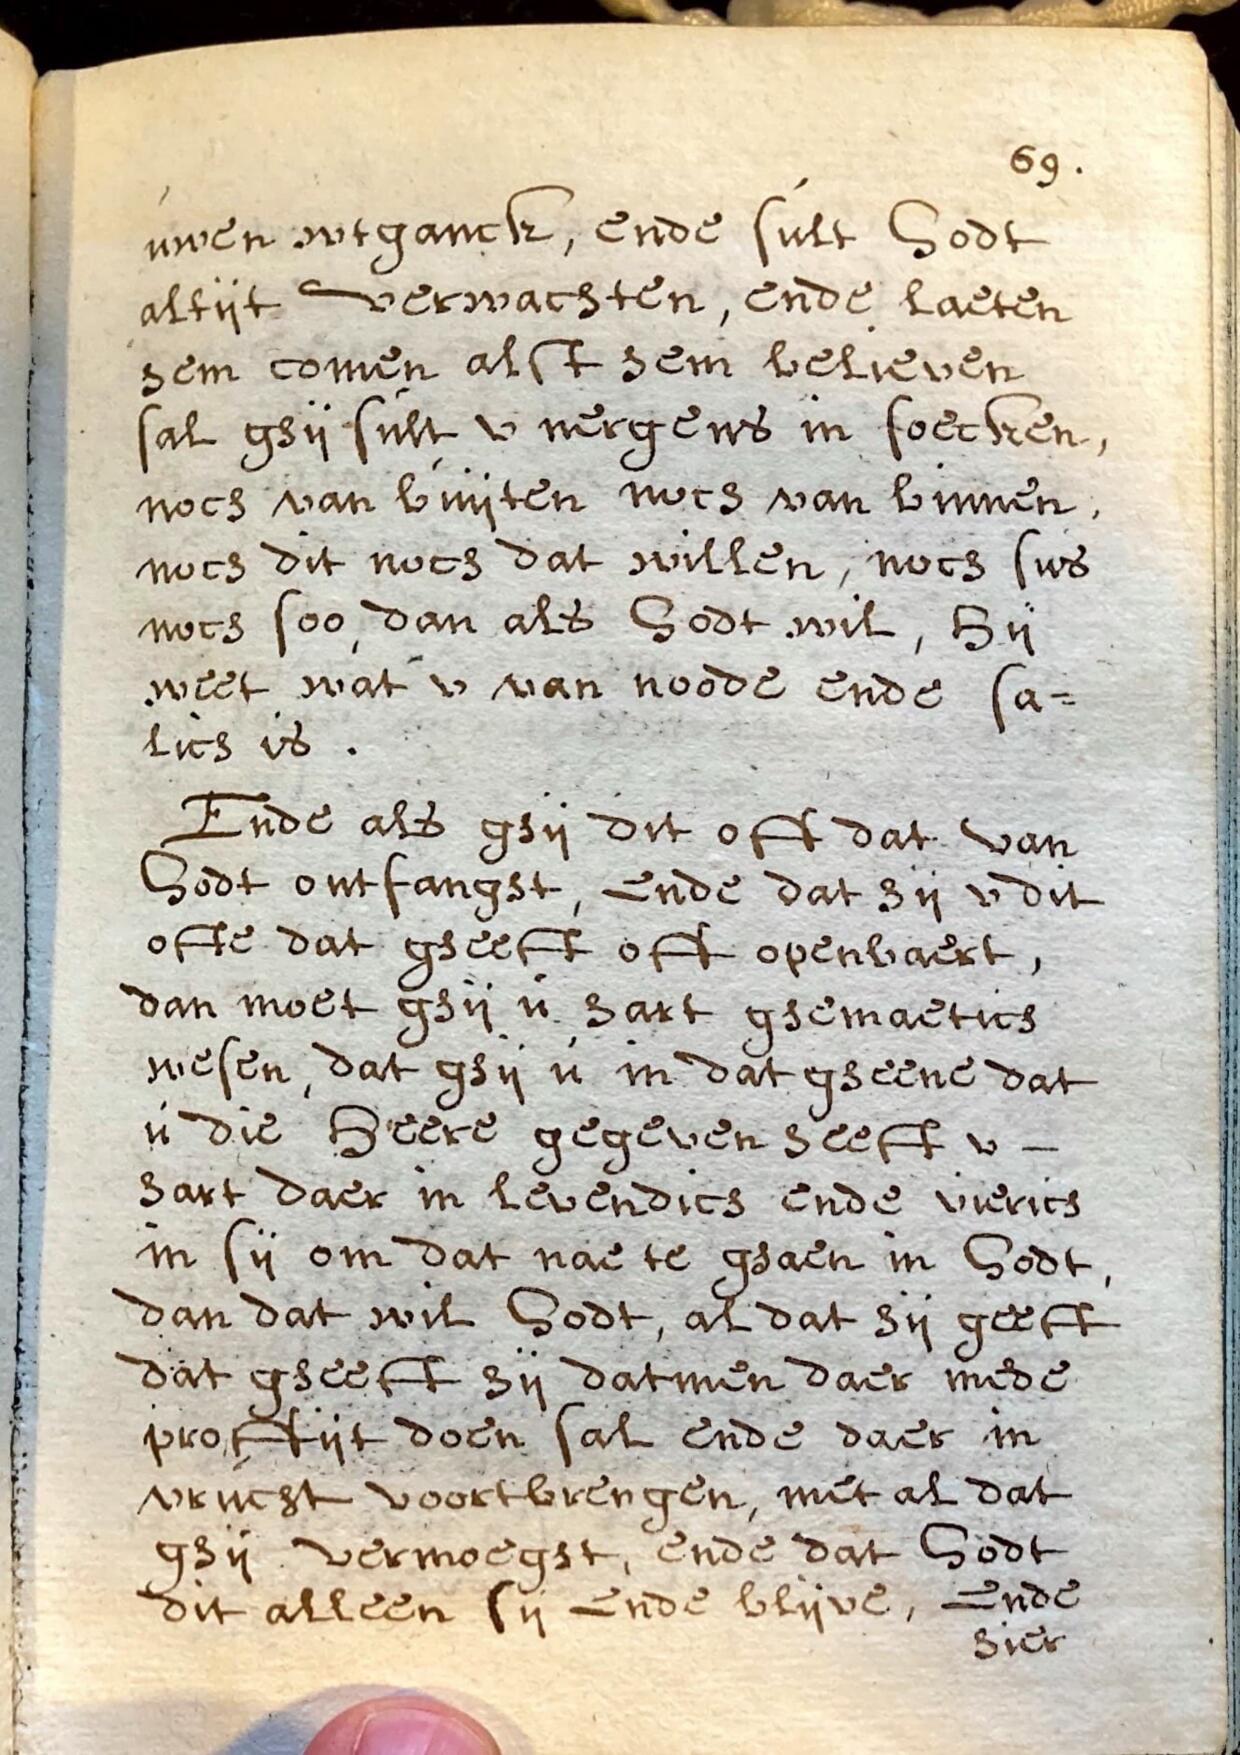 69.
uwen wtganck, ende sult Godt
altijt verwachten, ende laeten
hem comen alst hem believen
sal ghij sult v nergens in soecken,
noch van buijten noch van binnen,
noch dit noch dat willen, noch sus
noch soo, dan als Godt wil, Hij
weet wat v van noode ende sa=
lich is.
Ende als ghij dit oft dat van
Godt ontfangst, Ende dat hij v dit
ofte dat gheeft oft openbaert,
dan moet ghij u hart ghemaetich
wesen, dat ghij u in dat gheene dat
u die Heere gegeven heeft v –
hart daer in levendich ende vierich
in sij om dat nae te ghaen in Godt,
dan dat wil Godt, al dat hij geeft
dat gheeft hij datmen daer mede
proffijt doen sal ende daer in
vrucht voortbrengen, met al dat
ghij vermoegst, ende dat Godt
dit alleen sij Ende blijve, Ende
hier